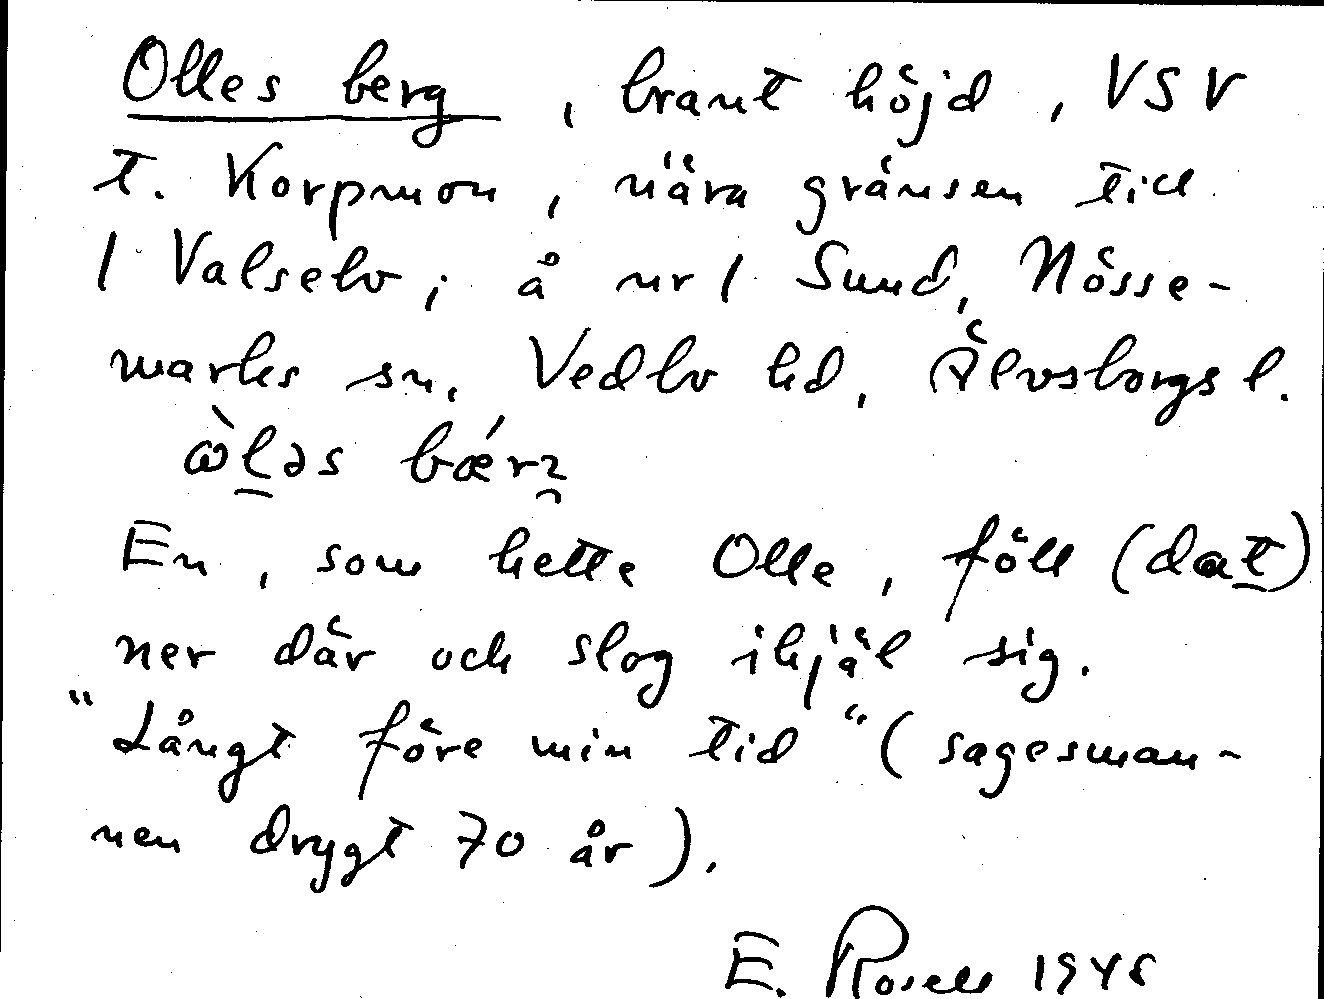 Olles berg, brant höjd, VSV
t. Korpmon, nära gränsen till
/ Valsebo; å ur / Sund, Nösse-
marks sn, Vedbo hd, Älvsborgs l.
En, som hette Olle, föll (dat)
ner där och slog ihjäl sig.
"Långt före min tid" (sagesman-
nen drygt 70 år).
E. Rosell